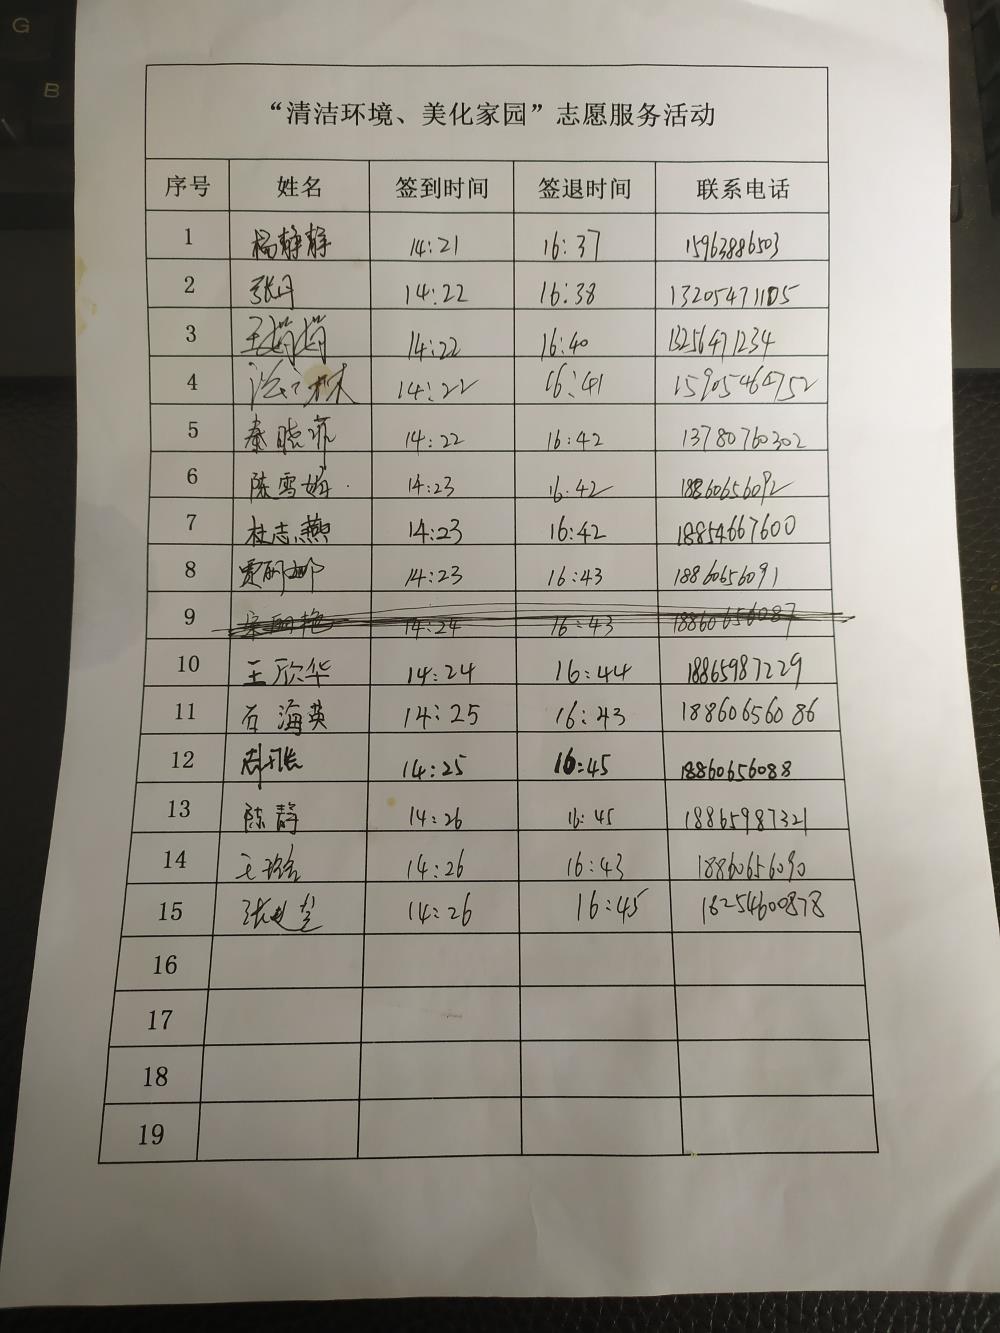 G
B
“清洁环境、美化家园”志愿服务活动
序号 姓名 签到时间 签退时间 联系电话
1 杨静静 14:21 16:37 15963886503
2 张丹 14:22 16:38 13205471105
3 王莉莉 14:22 16:40 13256471234
4 14:22 16:41 15905464752
5 秦晓菲 14:22 16:42 13780760302
6 陈雪娇 14:23 16:42 18860656092
7 杜志燕 14:23 16:42 18854667600
8 贾丽娜 14:23 16:43 18860656091
9 宋丽艳 14:24 16:43 18860656087
10 王欣华 14:24 16:44 18865987229
11 石海英 14:25 16:43 18860656086
12 14:25 16:45 18860656088
13 陈静 14:26 16:45 18865987321
14 王璐 14:26 16:43 18860656090
15 14:26 16:45 18254600878
16
17
18
19